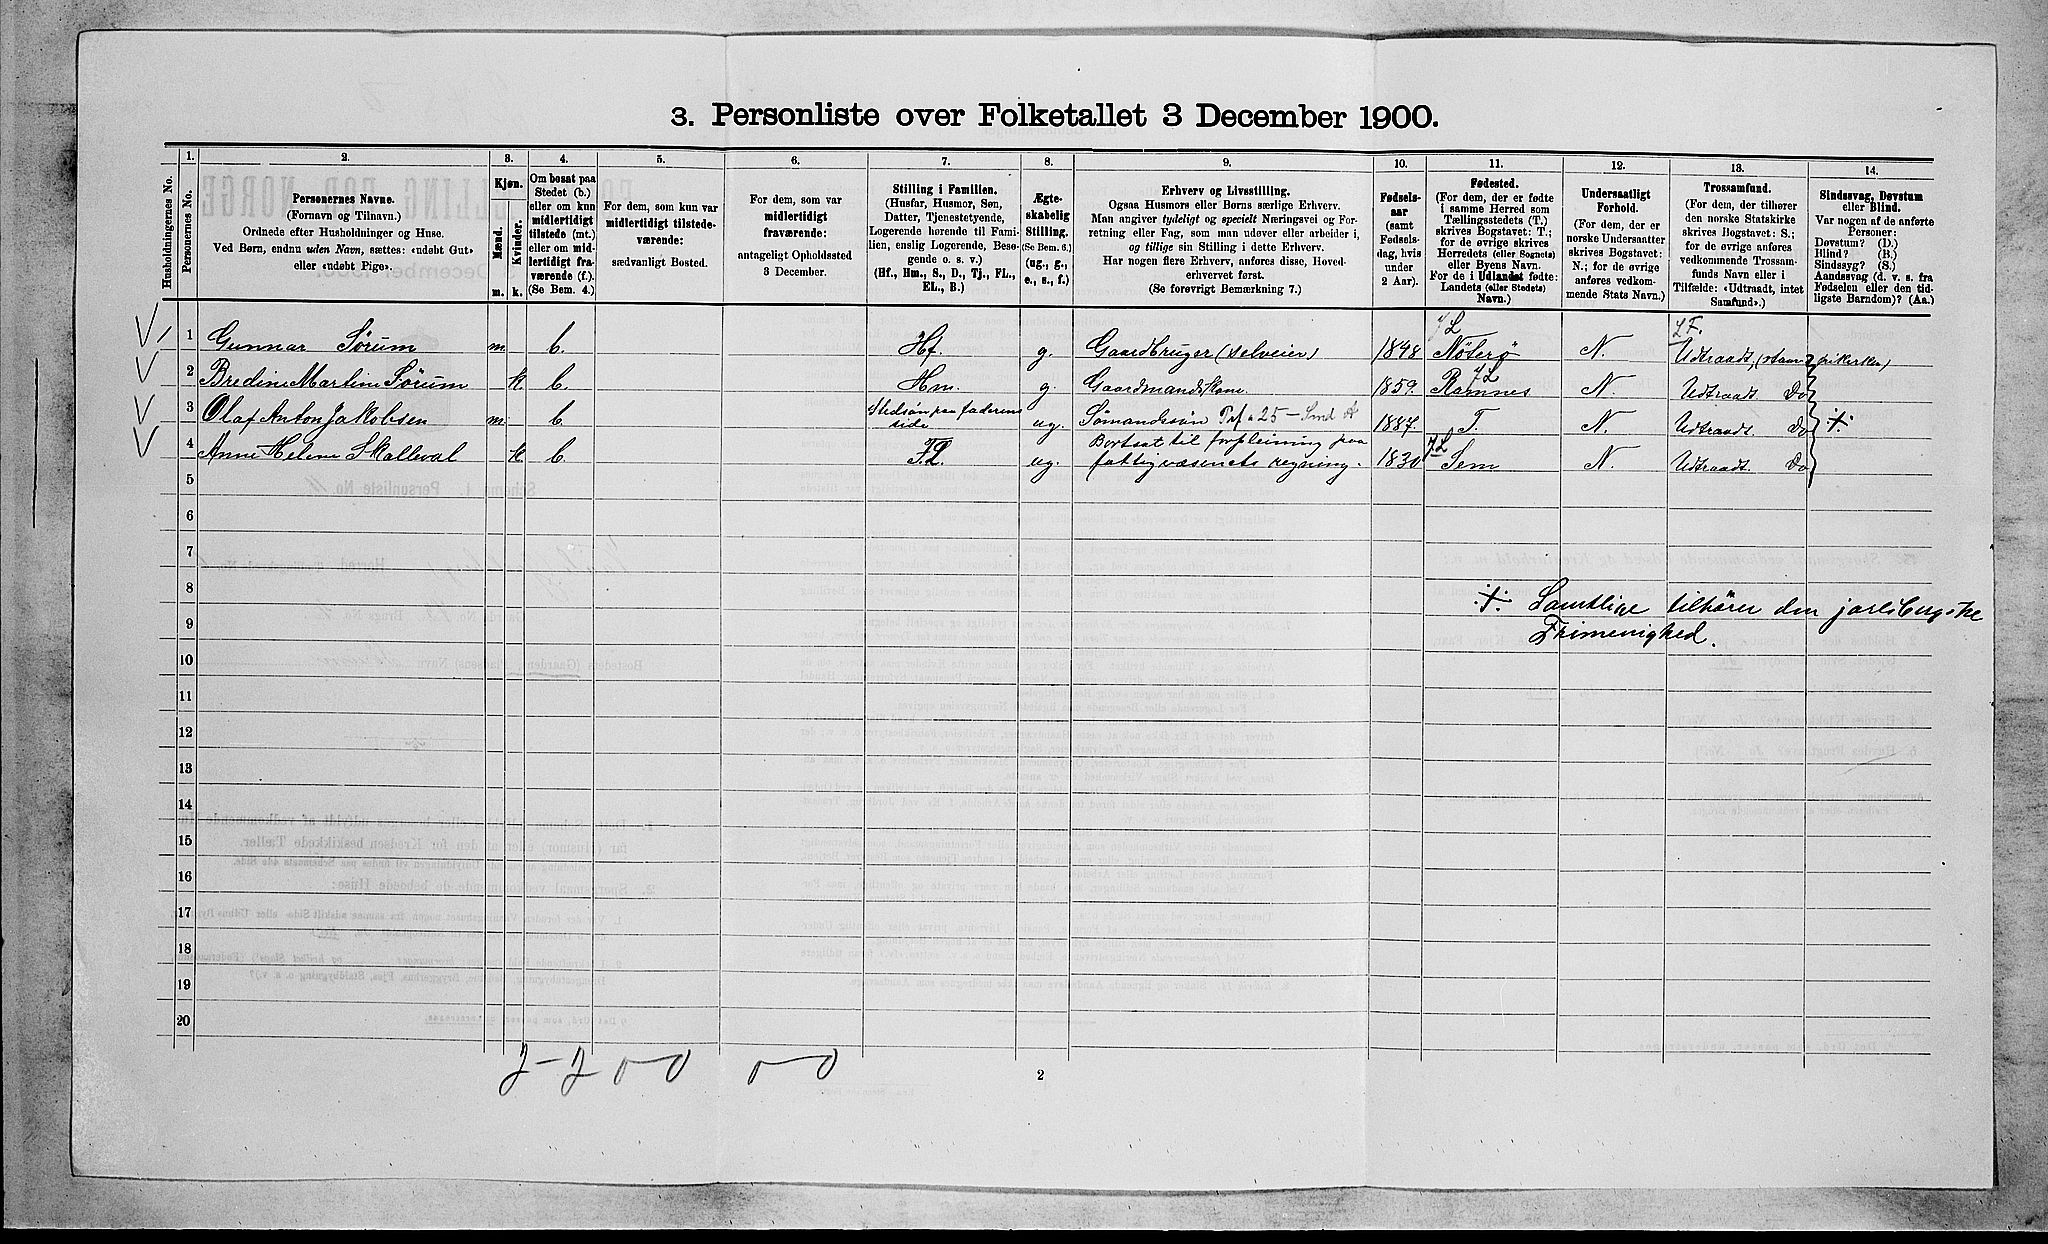 3. Personliste over Folketallet 3 December 1900.
Husholdningernes No.
1.
Personernes No.
2.
Personernes Navne.
(Fornavn og Tilnavn.)
Ordnede efter Husholdninger og Huse.
Ved Børn, endnu uden Navn, sættes: «udøbt Gut»
eller «udøbt Pige».
3.
Kjøn.
Mænd.
Kvinder.
m. k.
4.
Om bosat paa
Stedet (b.)
eller om kun
midlertidigt
tilstede (mt.)
eller om mid-
lertidigt fra-
værende (f.).
(Se Bem. 4.)
5.
For dem, som kun var
midlertidigt tilstede-
værende:
sædvanligt Bosted.
6.
For dem, som var
midlertidigt
fraværende:
antageligt Opholdssted
3 December.
7.
Stilling i Familien.
(Husfar, Husmor, Søn,
Datter, Tjenestetyende,
Logerende hørende til Fami-
lien, enslig Logerende, Besø-
gende o. s. v.)
(Hf., Hm., S., D., Tj., FL.,
EL., B.)
8.
Ægte-
skabelig
Stilling.
(Se Bem. 6.)
(ug., g.,
e., s., f.)
9.
Erhverv og Livsstilling.
Ogsaa Husmors eller Børns særlige Erhverv.
Man angiver tydeligt og specielt Næringsvei og For-
retning eller Fag, som man udøver eller arbeider i,
og tillige sin Stilling i dette Erhverv.
Har nogen flere Erhverv, anføres disse, Hoved-
erhvervet først.
(Se forøvrigt Bemærkning 7.)
10.
Fødsels-
aar
(samt
Fødsels-
dag, hvis
under
2 Aar).
11.
Fødested.
(For dem, der er fødte
i samme Herred som
Tællingsstedets (T.)
skrives Bogstavet: T.;
for de øvrige skrives
Herredets (eller Sognets)
eller Byens Navn.
For de i Udlandet fødte:
Landets (eller Stedets)
Navn.)
12.
Undersaatligt
Forhold.
(For dem, der er
norske Undersaatter
skrives Bogstavet:
N.; for de øvrige
anføres vedkom-
mende Stats Navn.)
13.
Trossamfund.
(For dem, der tilhører
den norske Statskirke
skrives Bogstavet: S.;
for de øvrige anføres
vedkommende Trossam-
funds Navn eller i
Tilfælde: «Udtraadt, intet
Samfund».)
14.
Sindssvag, Døvstum
eller Blind.
Var nogen af de anførte
Personer:
Døvstum? (D.)
Blind? (B.)
Sindssyg? (S.)
Aandssvag (d. v. s. fra
Fødselen eller den tid-
ligste Barndom)? (Aa.)
7 L
L F.
1 Gunnar Sørum m. b. Hf. g. Gaardbruger (selveier) 1848 Nøterø N. Udtraadt,
7 L
2 Bredine Martine Sørum k. b. Hm. g. Gaardmandskone 1859. Ramnes N. Udtraadt. Do
3 Olaf Anton Jakobsen m. b. Stedsøn paa faderens side ug. Sømandssøn 1887. T. N. Udtraadt. Do ·/·
7 L
4 Anne Helene Skalleval k. b. F.L. ug. Bortsat til forpleining paa
fattigvæsenets regning. 1830 Sem N. Udtraadt. Do
5
6
7
8
·/· Samtlige tilhører den jarlsbergske
9 Frimenighed.
10
11
12
13
14
15
16
17
18
19
20
2-2 0 0 0 0
2